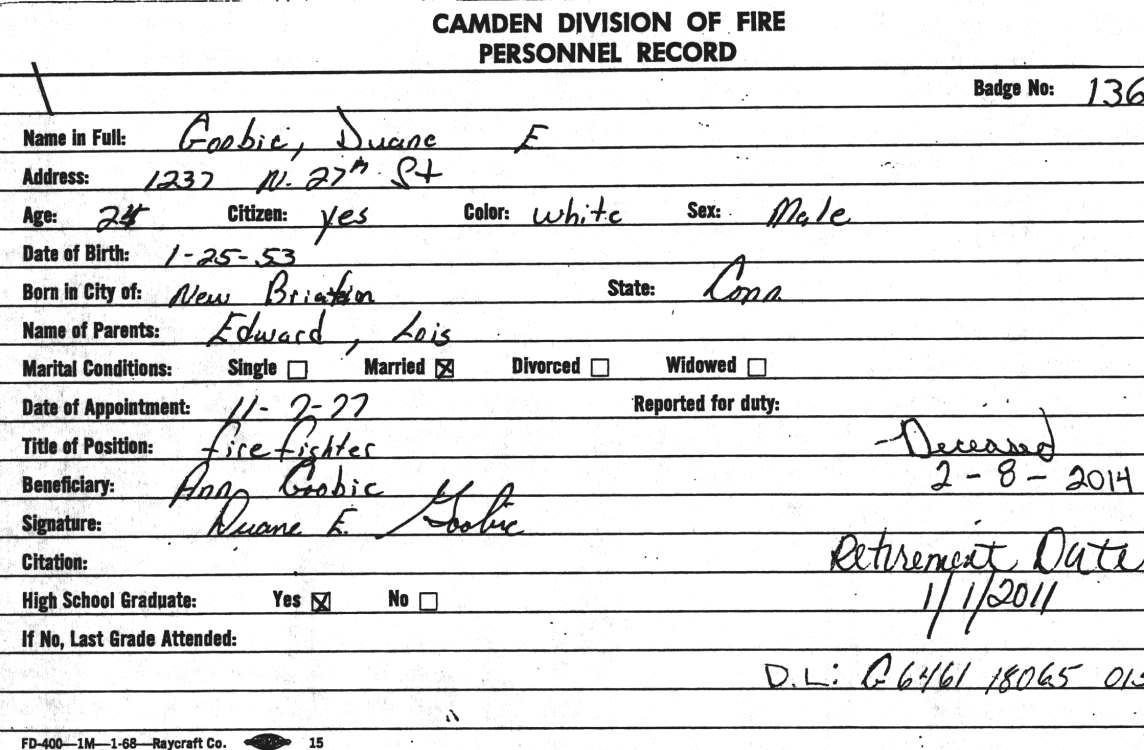 CAMDEN DIVISION OF FIRE
PERSONNEL RECORD
Badge No: 136
Name in Full: Goobic, Duane E
Address: 1237 N. 27th St
Age: 24 Citizen: yes Color: white Sex: Male
Date of Birth: 1-25-53
Born in City of: New State: Conn.
Name of Parents: Edward, Lois
Marital Conditions: Single ☐ Married ☒ Divorced ☐ Widowed ☐
Date of Appointment: 11-7-77 Reported for duty:
Title of Position: firefighter
Deceased
Beneficiary: Ann Goobic 2-8-2014
Signature: Duane E. Goobic
Citation: Retirement Date
High School Graduate: Yes ☒ No ☐ 1/1/2011
If No, Last Grade Attended:
D.L.: G6461 18065 015
FD-400—1M—1-68—Raycraft Co. 15